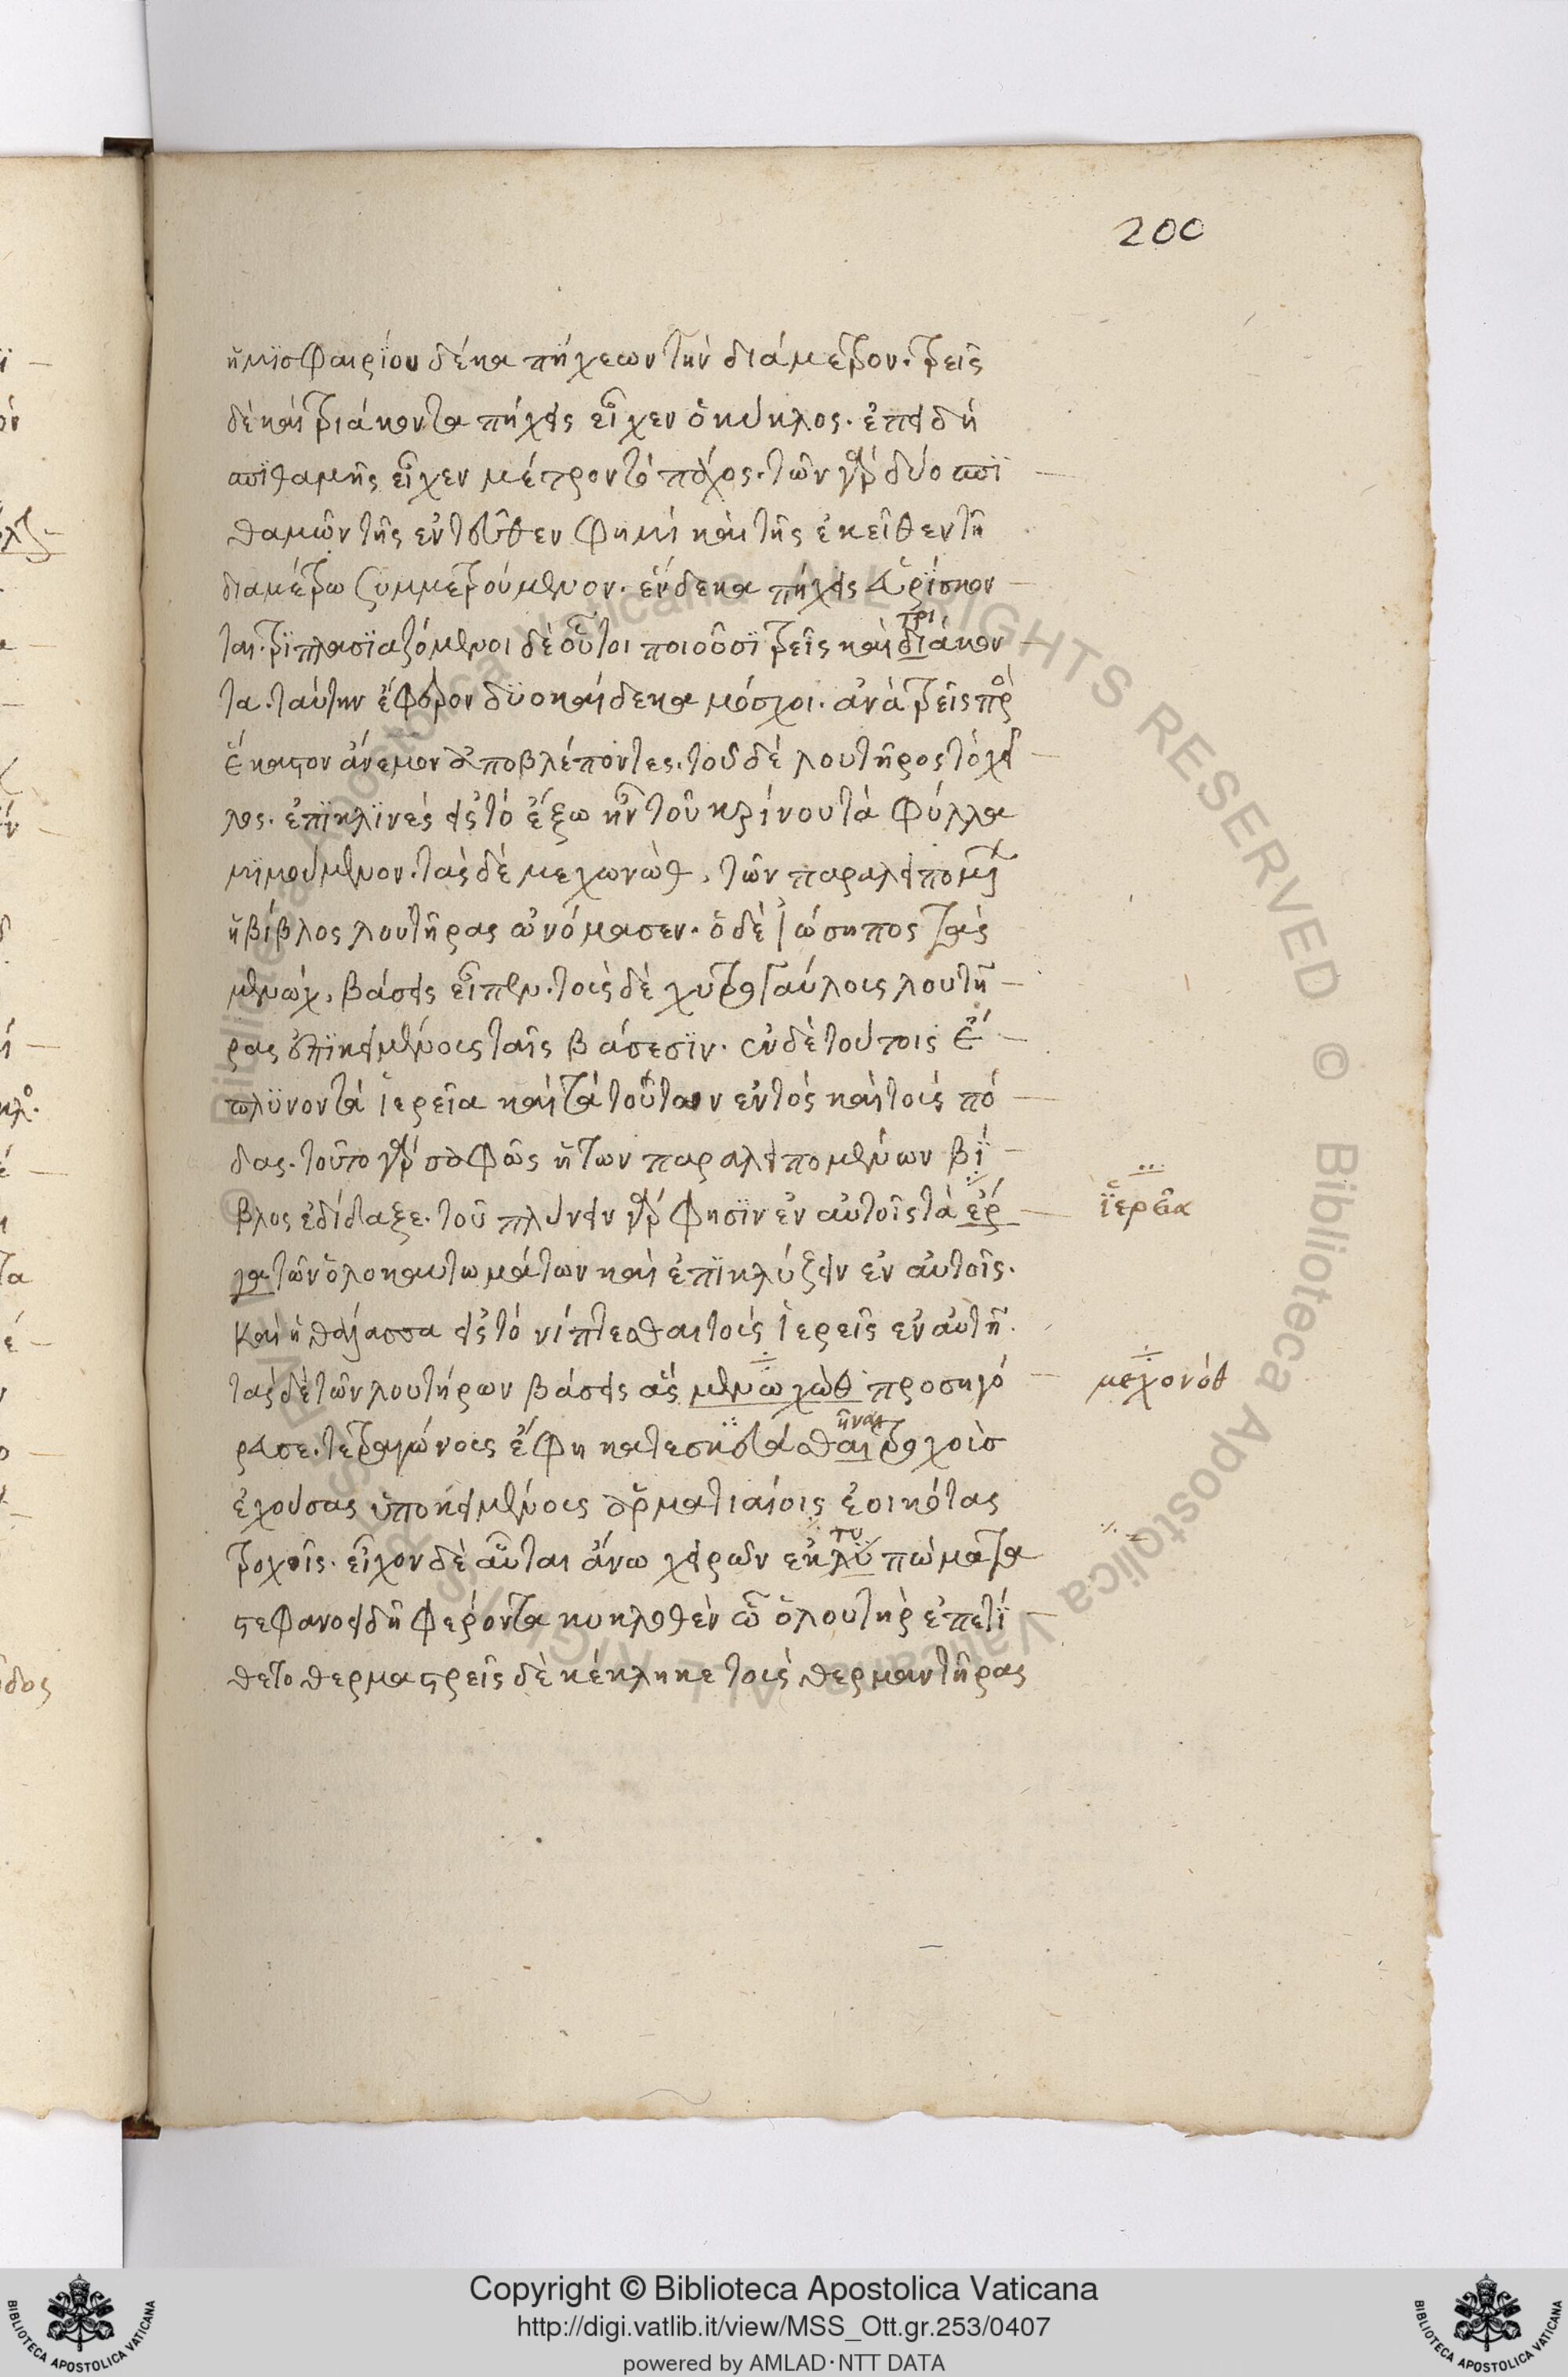 200
ἡμϊσφαιρίου δέκα πήχεων τὴν διάμετρον. τρεῖς
δὲ καὶ τριάκοντα πήχεις εἶχεν ὁ κύκλος. ἐπειδὴ
σπϊθαμῆς εἶχεν μέτρον τὸ πάχος. τῶν γὰρ δύο σπϊ
θαμῶν τῆς ἐντεῦθεν φημὶ καὶ τῆς ἐκεῖθεν τῇ
διαμέτρω συμμετρούμενον. ἕνδεκα πήχεις εὑρϊσκον
ται. τρϊπλασϊαζόμενοι δὲ οὗτοι ποιοῦσϊ τρεῖς καὶ διάκον
τρι
τα. ταύτην ἔφερον δϋοκαίδεκα μόσχοι. ἀνὰ τρεῖς πρὸ
ἕκαστον ἄνεμον ἀποβλέποντες. τοῦ δὲ λουτῆρος τὸ χεῖ
λος. ἐπϊκλϊνὲς εἰς τὸ ἔξω ἦν τοῦ κρίνου τὰ φύλλα
μϊμούμενον. τὰς δὲ μεχωνὼθ, τῶν παραλειπομέν
ἡ βίβλος λουτῆρας ὠνόμασεν. ὁ δὲ Ἰώσηπος τὰς
μενὼχ, βάσεις εἶπεν. τοὺς δὲ χυτρογαύλους λουτῆ
ρας ἐπϊκειμένους ταῖς βάσεσϊν. ἐν δὲ τούτοις ἔ
πλϋνον τὰ ἱερεῖα καὶ τὰ τούτων ἐντὸς καὶ τοὺς πό
δας. τοῦτο γὰρ σαφῶς ἡ τῶν παραλειπομένων βϊ
βλος ἐδίδαξε. τοῦ πλύνειν γὰρ φησϊν ἐν αὐτοῖς τὰ ἔρ
ἱερεῖα
γα τῶν ὁλοκαυτωμάτων καὶ ἐπϊκλύζειν ἐν αὐτοῖς.
Καὶ ἡ θάλασσα εἰς τὸ νίπτεσθαι τοὺς ἱερεῖς ἐν αὐτῇ.
τὰς δὲ τῶν λουτήρων βάσεις ἃς μενωχὼθ προσηγό
μεχονόθ
ρευσε. τετραγώνους ἔφη κατεσκϊστάσθαι τροχοὺσ
ἐχούσας ὑποκειμένους ἁρματιαίοις ἐοικότας
τροχοῖς. εἶχον δὲ αὗται ἄνω χειρῶν ἐκλυπώματα
τυ
στεφανοειδῆ φέροντα κυκλόθεν ὧ ὁ λουτὴρ ἐπετϊ
θετο θερμαστρεῖς δὲ κέκληκε τοὺς θερμαντῆρας
Copyright © Biblioteca Apostolica Vaticana
http://digi.vatlib.it/view/MSS_Ott.gr.253/0407
powered by AMLAD·NTT DATA